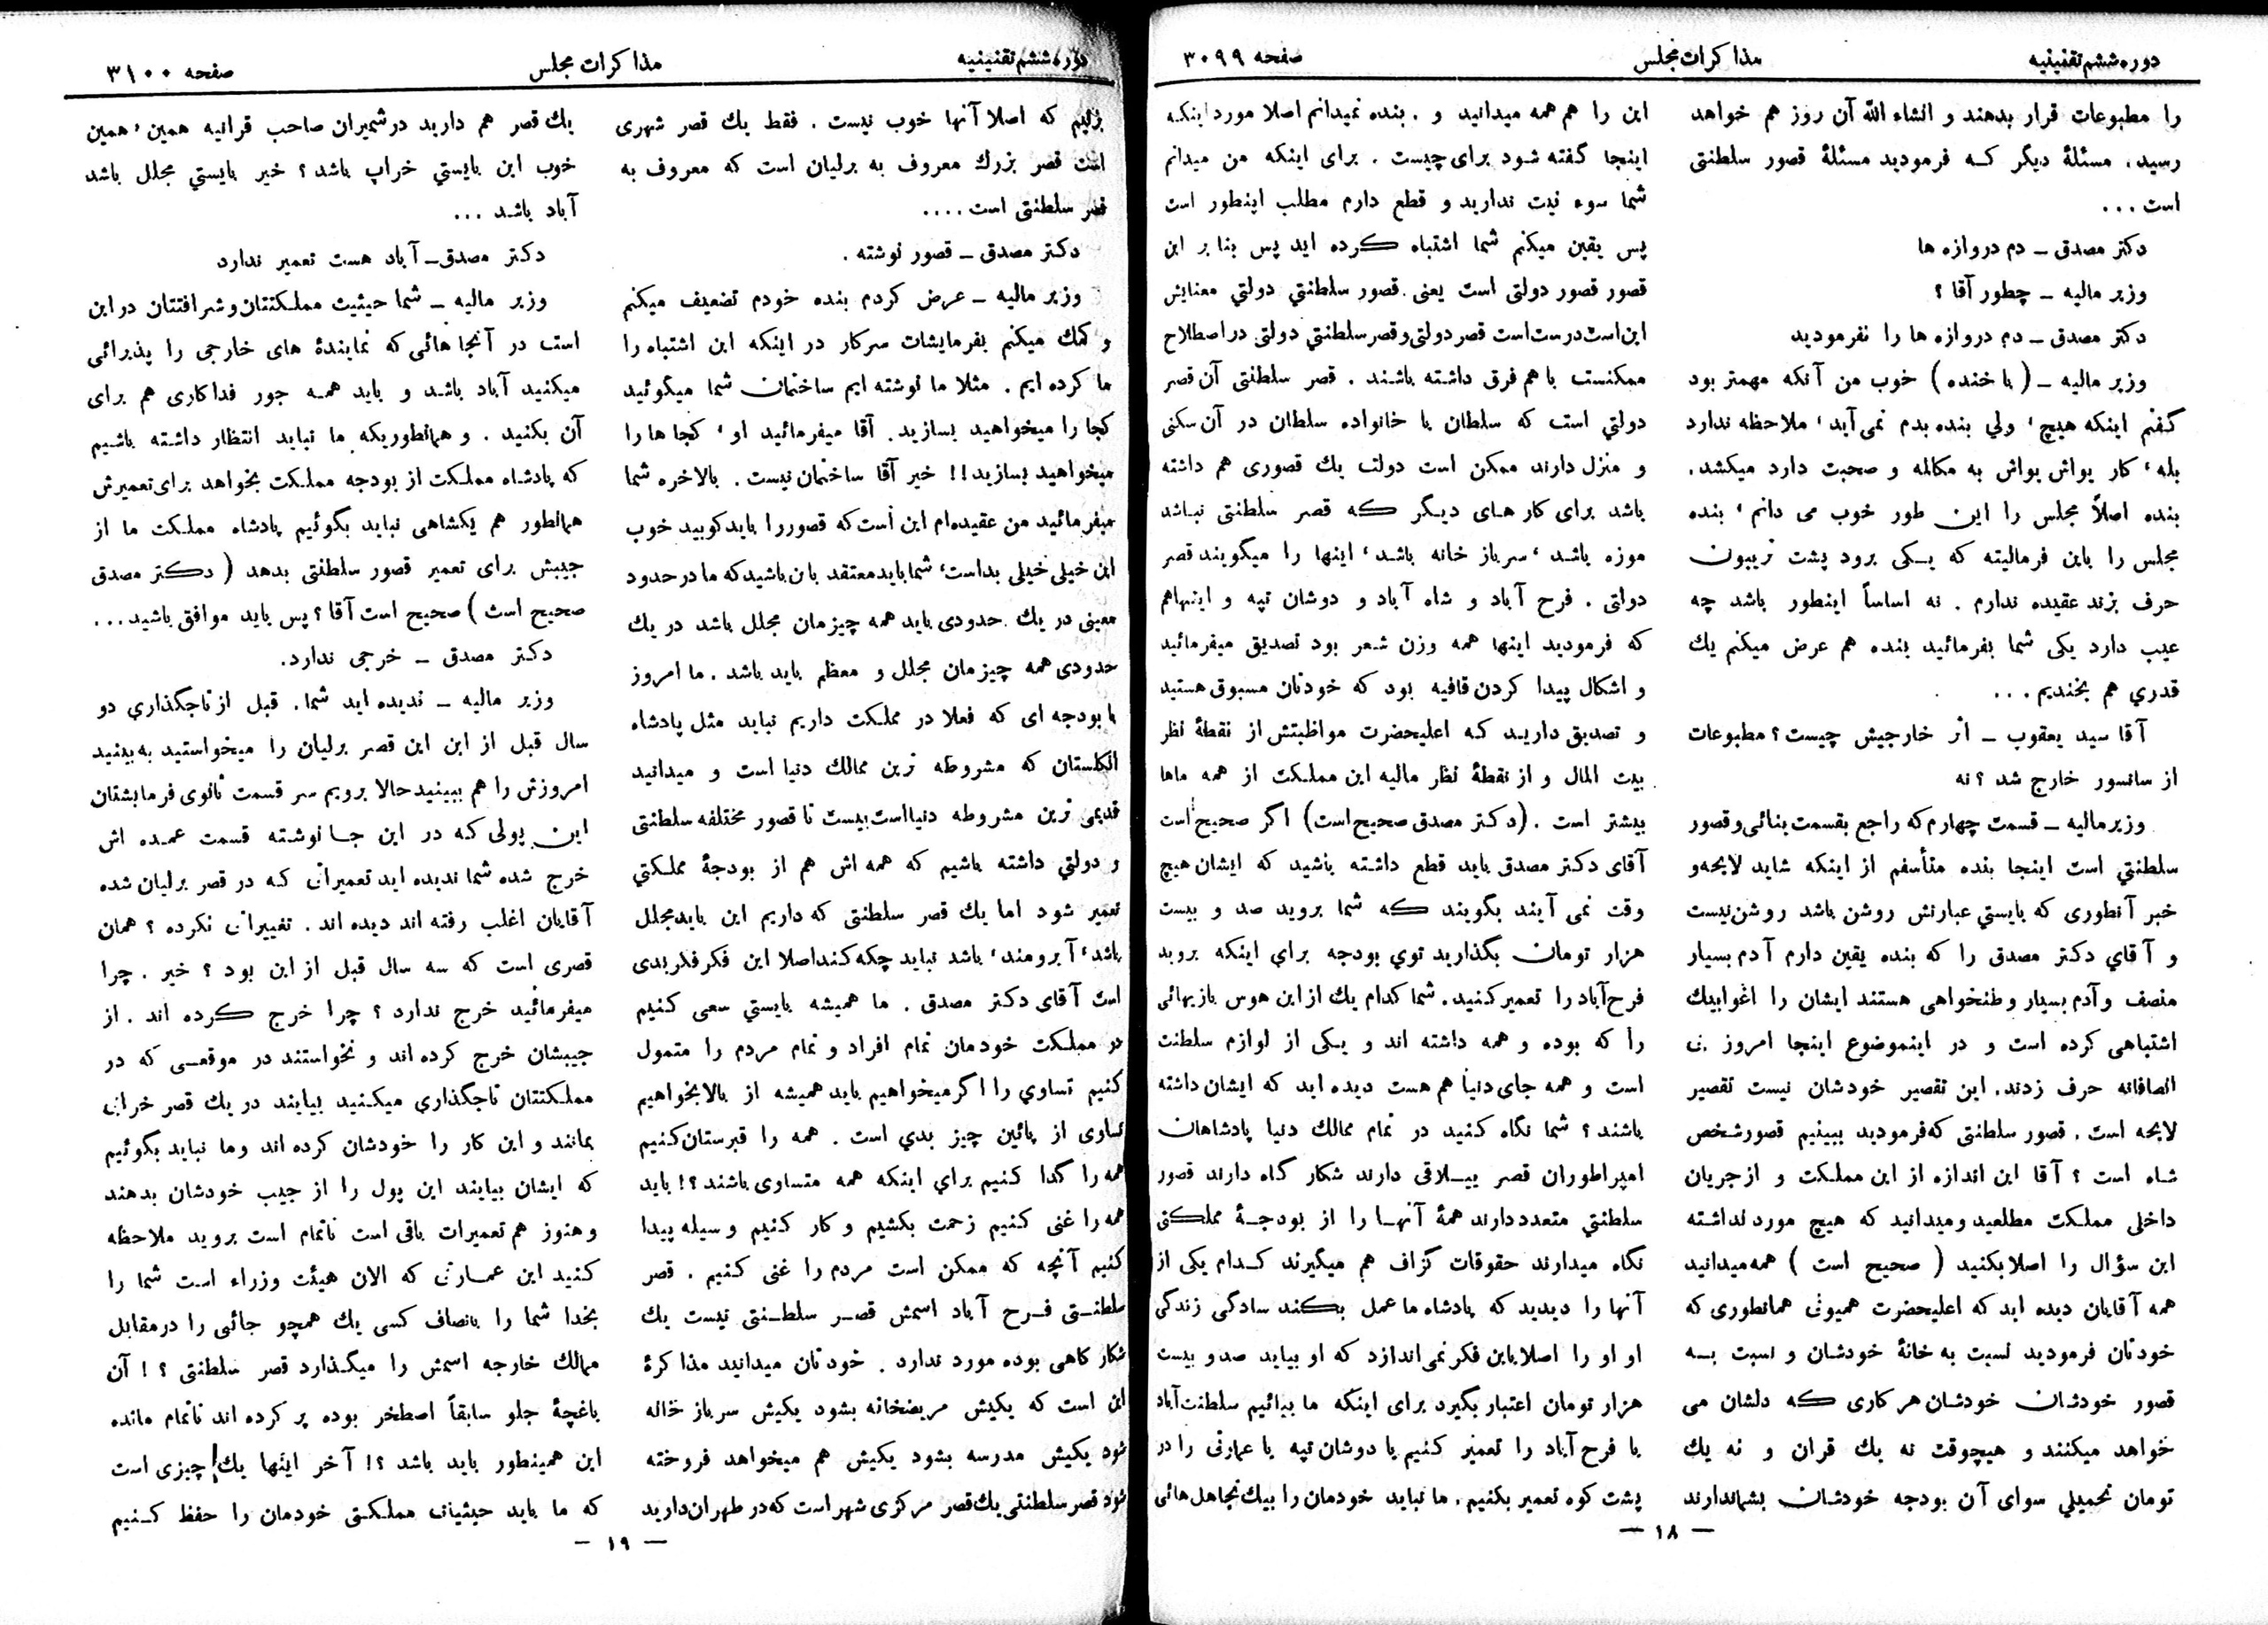 دوره ششم تقنینیه
مذاکرات مجلس
صفحه ۳۰۹۹
را مطبوعات قرار بدهند و انشاء الله آن روز هم خواهد
رسید. مسئلهٔ دیگر که فرمودید مسئلهٔ قصور سلطنتی
است ...
دکتر مصدق ـ دم دروازه ها
وزیر مالیه ـ چطور آقا ؟
دکتر مصدق ـ دم دروازه ها را نفرمودید
وزیر مالیه ـ ( با خنده ) خوب من آنکه مهمتر بود
گفتم اینکه هیچ، ولي بنده بدم نمی آید، ملاحظه ندارد
بله، کار یواش یواش به مکالمه و صحبت دارد میکشد.
بنده اصلاً مجلس را این طور خوب می دانم، بنده
مجلس را باین فرمالیته که یکی برود پشت تریبون
حرف بزند عقیده ندارم . نه اساساً اینطور باشد چه
عیب دارد یکی شما بفرمائید بنده هم عرض میکنم یك
قدري هم بخندیم ...
آقا سید یعقوب ـ اثر خارجیش چیست ؟ مطبوعات
از سانسور خارج شد ؟ نه
وزیر مالیه ـ قسمت چهارم که راجع بقسمت بنائی و قصور
سلطنتي است اینجا بنده متأسفم از اینکه شاید لایحه و
خبر آنطوری که بایستي عبارتش روشن باشد روشن نیست
و آقاي دکتر مصدق را که بنده یقین دارم آدم بسیار
منصف و آدم بسیار وطنخواهی هستند ایشان را اغوا بیك
اشتباهی کرده است و در اینموضوع اینجا امروز بی
انصافانه حرف زدند. این تقصیر خودشان نیست تقصیر
لایحه است . قصور سلطنتی که فرمودید ببینیم قصور شخص
شاه است ؟ آقا این اندازه از این مملکت و از جریان
داخلی مملکت مطلعید و میدانید که هیچ مورد نداشته
این سؤال را اصلا بکنید ( صحیح است ) همه میدانید
همه آقایان دیده اید که اعلیحضرت همیونی همانطوری که
خودتان فرمودید نسبت به خانهٔ خودشان و نسبت به
قصور خودشان خودشان هر کاری که دلشان می
خواهد میکنند و هیچوقت نه یك قران و نه یك
تومان تحمیلي سوای آن بودجه خودشان بشما ندارند
این را هم همه میدانید و . بنده نمیدانم اصلا مورد اینکه
اینجا گفته شود برای چیست . برای اینکه من میدانم
شما سوء نیت ندارید و قطع دارم مطلب اینطور است
پس یقین میکنم شما اشتباه کرده اید پس بنا بر این
قصور قصور دولتی است یعنی قصور سلطنتي دولتي معنایش
این است درست است قصر دولتی و قصر سلطنتي دولتی در اصطلاح
ممکنست با هم فرق داشته باشند . قصر سلطنتی آن قصر
دولتي است که سلطان یا خانواده سلطان در آن سکنی
و منزل دارند ممکن است دولت یك قصوری هم داشته
باشد برای کار های دیگر که قصر سلطنتی نباشد
موزه باشد، سرباز خانه باشد، اینها را میگویند قصر
دولتی . فرح آباد و شاه آباد و دوشان تپه و اینها هم
که فرمودید اینها همه وزن شعر بود تصدیق میفرمائید
و اشکال پیدا کردن قافیه بود که خودتان مسبوق هستید
و تصدیق دارید که اعلیحضرت مواظبتش از نقطهٔ نظر
بیت المال و از نقطهٔ نظر مالیه این مملکت از همه ماها
بیشتر است . (دکتر مصدق صحیح است) اگر صحیح است
آقای دکتر مصدق باید قطع داشته باشید که ایشان هیچ
وقت نمی آیند بگویند که شما بروید صد و بیست
هزار تومان بگذارید توي بودجه براي اینکه بروید
فرح آباد را تعمیر کنید. شما کدام یك از این هوس بازیهائی
را که بوده و همه داشته اند و یکی از لوازم سلطنت
است و همه جای دنیا هم هست دیده اید که ایشان داشته
باشند ؟ شما نگاه کنید در تمام ممالك دنیا پادشاهان
امپراطوران قصر ییلاقی دارند شکار گاه دارند قصور
سلطنتي متعدد دارند همهٔ آنها را از بودجهٔ مملکتی
نگاه میدارند حقوقات گزاف هم میگیرند کدام یکی از
آنها را دیدید که پادشاه ما عمل بکند سادگی زندگی
او او را اصلا باین فکر نمی اندازد که او بیاید صد و بیست
هزار تومان اعتبار بگیرد برای اینکه ما بیائیم سلطنت آباد
یا فرح آباد را تعمیر کنیم یا دوشان تپه یا عمارتی را در
پشت کوه تعمیر بکنیم . ما نباید خودمان را بیك تجاهل هائی
ـ ۱۸ ـ
دوره ششم تقنینیه
مذاکرات مجلس
صفحه ۳۱۰۰
بزنیم که اصلا آنها خوب نیست . فقط یك قصر شهری
است قصر بزرك معروف به برلیان است که معروف به
قصر سلطنتی است ....
دکتر مصدق ـ قصور نوشته .
وزیر مالیه ـ عرض کردم بنده خودم تضعیف میکنم
و کمك میکنم بفرمایشات سرکار در اینکه این اشتباه را
ما کرده ایم . مثلا ما نوشته ایم ساختمان شما میگوئید
کجا را میخواهید بسازید. آقا میفرمائید او، کجا ها را
میخواهید بسازید!! خیر آقا ساختمان نیست . بالاخره شما
میفرمائید من عقیده‌ام این است که قصور را باید کوبید خوب
این خیلی خیلی بد است، شما باید معتقد بان باشید که ما در حدود
معینی در یك حدودی باید همه چیزمان مجلل باشد در یك
حدودی همه چیزمان مجلل و معظم باید باشد . ما امروز
با بودجه ای که فعلا در مملکت داریم نباید مثل پادشاه
انگلستان که مشروطه ترین ممالك دنیا است و میدانید
قدیمی ترین مشروطه دنیا است بیست تا قصور مختلفه سلطنتی
و دولتي داشته باشیم که همه اش هم از بودجهٔ مملکتي
تعمیر شود اما یك قصر سلطنتی که داریم این باید مجلل
باشد، آبرومند، باشد نباید چکه کند اصلا این فکر فکر بدی
است آقای دکتر مصدق . ما همیشه بایستي سعی کنیم
در مملکت خودمان تمام افراد و تمام مردم را متمول
کنیم تساوي را اگر میخواهیم باید همیشه از بالا بخواهیم
تساوی از پائین چیز بدي است . همه را قبرستان کنیم
همه را گدا کنیم براي اینکه همه متساوی باشند ؟! باید
همه را غنی کنیم زحمت بکشیم و کار کنیم و سیله پیدا
کنیم آنچه که ممکن است مردم را غنی کنیم . قصر
سلطنتی فرح آباد اسمش قصر سلطنتی نیست یك
شکار گاهی بوده مورد ندارد . خودتان میدانید مذاکرهٔ
این است که یکیش مریضخانه بشود یکیش سرباز خانه
شود یکیش مدرسه بشود یکیش هم میخواهد فروخته
شود قصر سلطنتی یك قصر مرکزی شهر است که در طهران دارید
یك قصر هم دارید در شمیران صاحب قرانیه همین، همین
خوب این بایستي خراب باشد ؟ خیر بایستي مجلل باشد
آباد باشد ...
دکتر مصدق ـ آباد هست تعمیر ندارد
وزیر مالیه ـ شما حیثیت مملکتتان و شرافتتان در این
است در آنجا هائی که نمایندهٔ های خارجی را پذیرائی
میکنید آباد باشد و باید همه جور فداکاری هم برای
آن بکنید . و همانطوریکه ما نباید انتظار داشته باشیم
که پادشاه مملکت از بودجه مملکت بخواهد برای تعمیرش
همانطور هم یکشاهی نباید بگوئیم پادشاه مملکت ما از
جیبش برای تعمیر قصور سلطنتی بدهد ( دکتر مصدق
صحیح است ) صحیح است آقا ؟ پس باید موافق باشید ...
دکتر مصدق ـ خرجی ندارد.
وزیر مالیه ـ ندیده اید شما. قبل از تاجگذاري دو
سال قبل از این این قصر برلیان را میخواستید به بینید
امروزش را هم ببینید حالا برویم سر قسمت ثانوی فرمایشتان
این پولی که در این جا نوشته قسمت عمده اش
خرج شده شما ندیده اید تعمیراتی که در قصر برلیان شده
آقایان اغلب رفته اند دیده اند . تغییراتی نکرده ؟ همان
قصری است که سه سال قبل از این بود ؟ خیر . چرا
میفرمائید خرج ندارد ؟ چرا خرج کرده اند . از
جیبشان خرج کرده اند و نخواستند در موقعی که در
مملکتتان تاجگذاري میکنید بیایند در یك قصر خرابی
بمانند و این کار را خودشان کرده اند وما نباید بگوئیم
که ایشان بیایند این پول را از جیب خودشان بدهند
و هنوز هم تعمیرات باقی است ناتمام است بروید ملاحظه
کنید این عمارتی که الان هیئت وزراء است شما را
بخدا شما را بانصاف کسی یك همچو جائی را در مقابل
ممالك خارجه اسمش را میگذارد قصر سلطنتی ؟ ! آن
باغچهٔ جلو سابقاً اصطخر بوده پر کرده اند ناتمام مانده
این همینطور باید باشد ؟! آخر اینها یك چیزی است
که ما باید حیثیات مملکتی خودمان را حفظ کنیم
ـ ۱۹ ـ